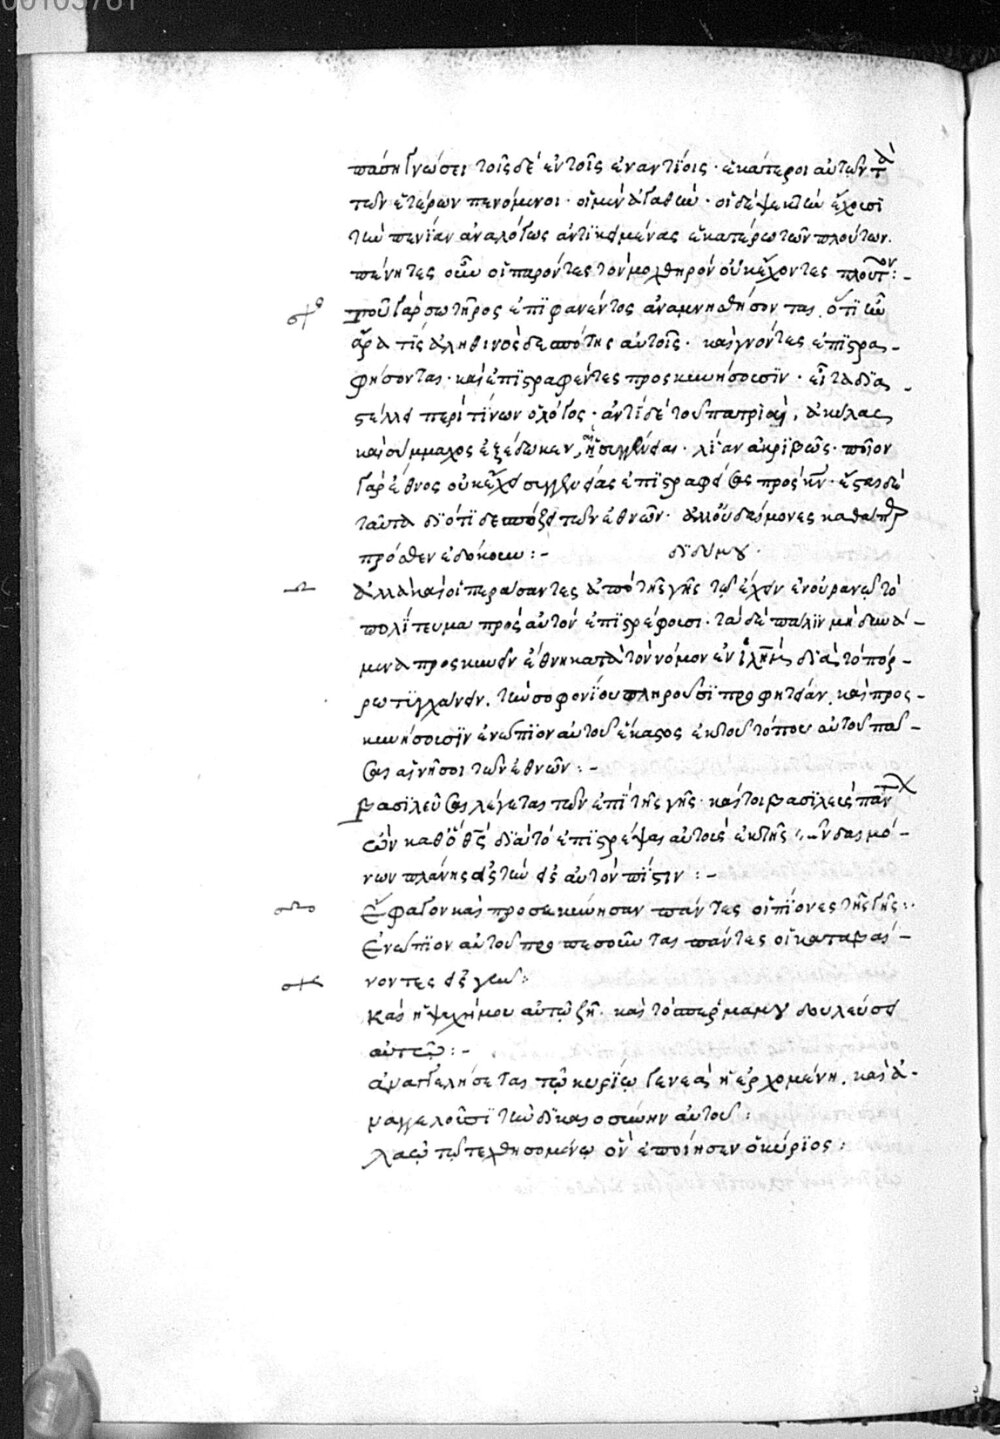 00103761
πάση γνώσει τοῖς δὲ ἐν τοῖς ἐναντίοις · ἑκάτεροι αὐτῶν τὰ
τῶν ἑτέρων πενόμενοι · οἱ μὲν ἀγαθὴν · οἱ δὲ ψεκτὴν ἔχουσι
τὴν πενίαν ἀναλόγως ἀντικειμένας ἑκατέρω τῶν πλούτων.
πένητες οὖν οἱ παρόντες τὸν μοχθηρὸν οὐκ ἔχοντες πλοῦτον :-
τοῦ γὰρ σωτῆρος ἐπιφανέντος ἀναμνησθήσονται, ὅτι ἦν
ἄρα τίς ἀληθινὸς δεσπότης αὐτοῖς · καὶ γνόντες ἐπιστρα-
φήσονται · καὶ ἐπιστραφέντες προσκυνήσουσιν · εἶτα δια-
στέλλει περὶ τίνων ὁ λόγος · ἀντὶ δὲ τοῦ πατριαὶ, ἀκύλας
καὶ σύμμαχος ἐξέδωκεν, συγγένειαι · λίαν ἀκριβῶς · ποῖον
γὰρ ἔθνος οὐκ ἔχει συγγενείας ἐπιστραφείσας πρὸς κν · ἔσται δὲ
ταῦτα διότι δεσπόζει τῶν ἐθνῶν · ἀλλ' οὐ δαίμονες καθάπερ
πρόσθεν ἐδόκουν :- διδύμου ·
ἀλλὰ καὶ οἱ περάσαντες ἀπὸ τῆς γῆς τῷ ἔχειν ἐν οὐρανῷ τὸ
πολίτευμα πρὸς αὐτὸν ἐπιστρέφουσι · τὰ δὲ πάλιν μὴ δυνά-
μενα προσκυνεῖν ἔθνη κατὰ τὸν νόμον ἐν διὰ τὸ πόρ-
ρω τυγχάνειν, τὴν σοφονίου πληροῦσι προφητείαν, καὶ προς-
κυνήσουσιν ἐνώπιον αὐτοῦ ἕκαστος ἐκ τοῦ τόπου αὐτοῦ πᾶ-
σαι αἱ νῆσοι τῶν ἐθνῶν :-
βασιλεῦσαι λέγεται τῶν ἐπὶ τῆς γῆς · καίτοι βασιλεὺς πάντ
ὢν καθὸ θς διὰ τὸ ἐπιστρέψαι αὐτοὺς ἐκ τῆς τῶν δαιμό-
νων πλάνης εἰς τὴν εἰς αὐτὸν πίστιν :-
Ἔφαγον καὶ προσεκύνησαν πάντες οἱ πίονες τῆς γῆς :·
Ἐνώπιον αὐτοῦ προπεσοῦνται πάντες οἱ καταβαί-
νοντες εἰς γῆν :
Καὶ ἡ ψυχή μου αὐτῷ ζῆ · καὶ τὸ σπέρμα μου δουλεύσει
αὐτῷ :-
ἀναγγελήσεται τῷ κυρίῳ γενεὰ ἡ ἐρχομένη, καὶ ἀ-
ναγγελοῦσι τὴν δικαιοσύνην αὐτοῦ :
λαῷ τῷ τεχθησομένῳ ὃν ἐποίησεν ὁ κύριος :